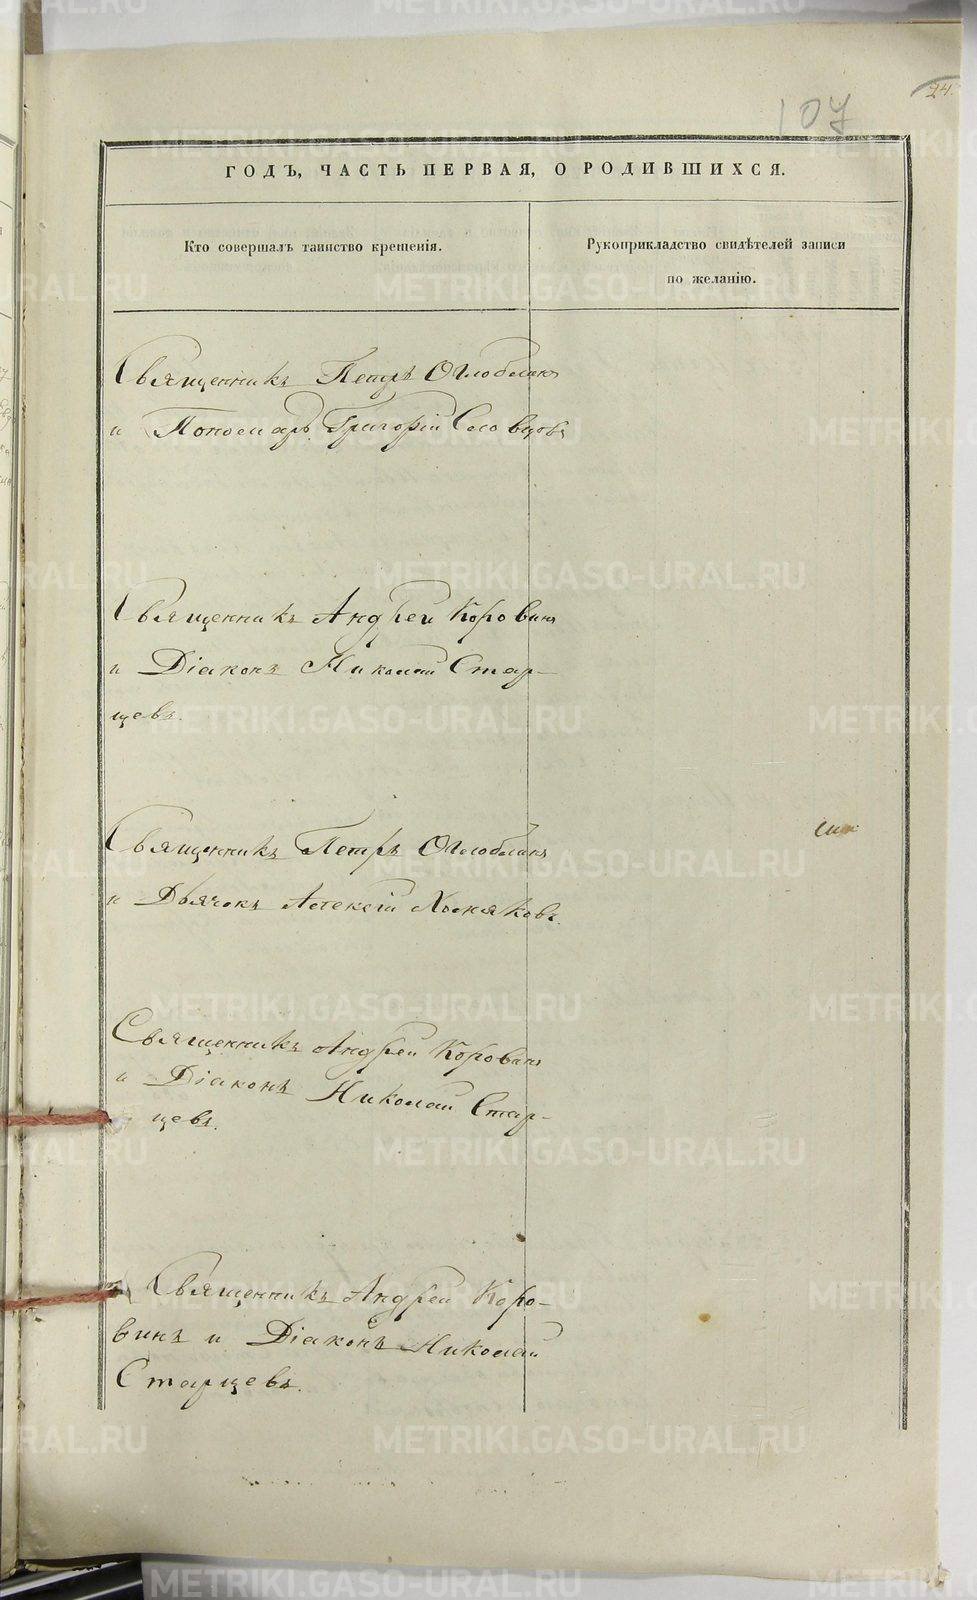 107
24.
ГОДЪ, ЧАСТЬ ПЕРВАЯ, О РОДИВШИХСЯ.
Кто совершалъ таинство крещенія.
Рукоприкладство свидѣтелей записи
по желанію.
Священникъ Петръ Оглоблинъ
и Пономарь Григорій Словцовъ
Священникъ Андрей Коровинъ
и Діаконъ Николай Стар-
цевъ.
Священникъ Петръ Оглоблинъ
и Дьячокъ Алексій Хомяковъ.
Священникъ Андрей Коровинъ
и Діаконъ Николай Стар-
цевъ.
Священникъ Андрей Коро-
винъ и Діаконъ Николай
Старцевъ.
METRIKI.GASO-URAL.RU